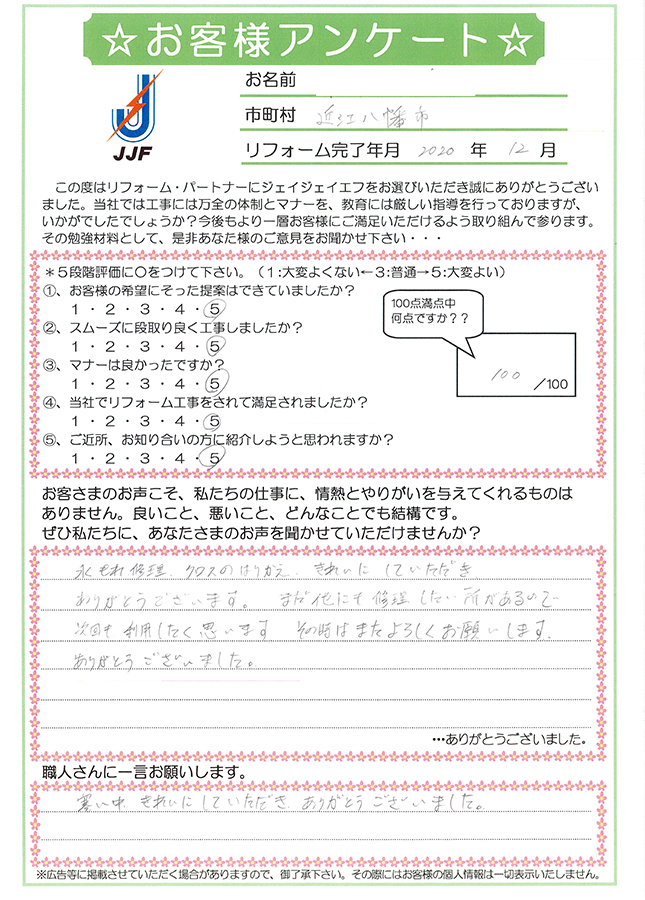 ☆お客様アンケート☆
JJF
お名前
市町村 近江八幡市
リフォーム完了年月 2020 年 12 月
この度はリフォーム・パートナーにジェイジェイエフをお選びいただき誠にありがとうござい
ました。当社では工事には万全の体制とマナーを、教育には厳しい指導を行っておりますが、
いかがでしたでしょうか？今後もより一層お客様にご満足いただけるよう取り組んで参ります。
その勉強材料として、是非あなた様のご意見をお聞かせ下さい・・・
＊５段階評価に〇をつけて下さい。（１:大変よくない←３:普通→５:大変よい）
①、お客様の希望にそった提案はできていましたか？
１・２・３・４・５
②、スムーズに段取り良く工事しましたか？
１・２・３・４・５
③、マナーは良かったですか？
１・２・３・４・５
④、当社でリフォーム工事をされて満足されましたか？
１・２・３・４・５
⑤、ご近所、お知り合いの方に紹介しようと思われますか？
１・２・３・４・５
100点満点中
何点ですか？？
100 ／100
お客さまのお声こそ、私たちの仕事に、情熱とやりがいを与えてくれるものは
ありません。良いこと、悪いこと、どんなことでも結構です。
ぜひ私たちに、あなたさまのお声を聞かせていただけませんか？
水もれ修理、クロスのはりかえ、きれいにしていただき
ありがとうございます。 まだ他にも修理したい所があるので
次回も利用したく思います その時はまたよろしくお願いします。
ありがとうございました。
…ありがとうございました。
職人さんに一言お願いします。
寒い中、きれいにしていただき、ありがとうございました。
※広告等に掲載させていただく場合がありますので、御了承下さい。その際にはお客様の個人情報は一切表示いたしません。